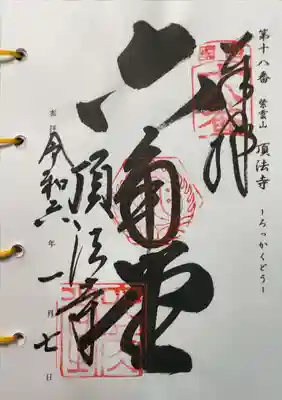 第十八番 紫雲山 頂法寺 -ろっかくどう-
奉拝
六角堂
頂法寺
奉拝 令和六年 一月 七日